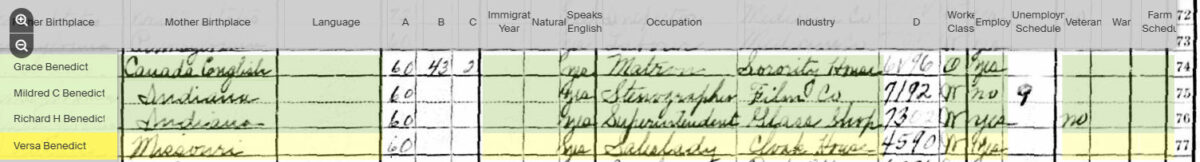 her Birthplace Mother Birthplace Language A B C Immigrat Year Natural Speaks English Occupation Industry D Worke Class Employ Unemploym Schedule Veteran War Farm Schedu 72
73
Grace Benedict Canada English 60 43 2 yes Matron Sorority House 6896 O yes 74
Mildred C Benedict Indiana 60 yes Stenographer Film Co 7192 W no 9 75
Richard H Benedict Indiana 60 yes Superintendent Glass Shop W yes no 76
Versa Benedict Missouri 60 yes Saleslady Cloak House 4590 W yes 77